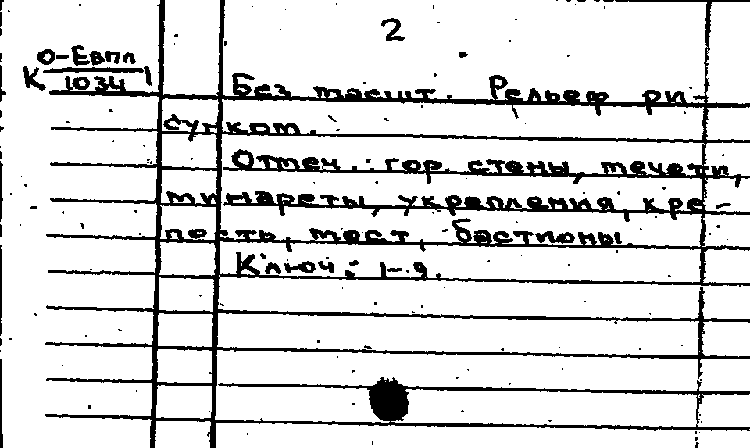 2
О-Евпл
К 1034 1
Без масшт. Рельеф ри-
сунком.
Отмеч.: гор. стены, мечети,
минареты, укрепления, кре-
пость, мост, бастионы.
Ключ: 1-9.